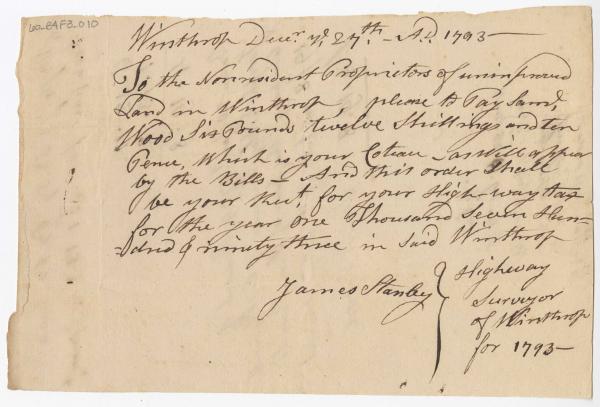 60_E4F3_010
Winthrop Decr. ye. 27th. AD. 1793—
To the Nonresident Proprietors of unimproved
Land in Winthrop, please to Pay Saml.
Wood Six Pounds twelve Shillings and ten
Pence, Which is your as Will appear
by the Bills— And this order Shall
be your Rect. for your High-way tax
for the year one Thousand Seven Hun-
-dred & ninety three in said Winthrop
James Stanley } Highway
Surveyor
of Winthrop
for 1793—